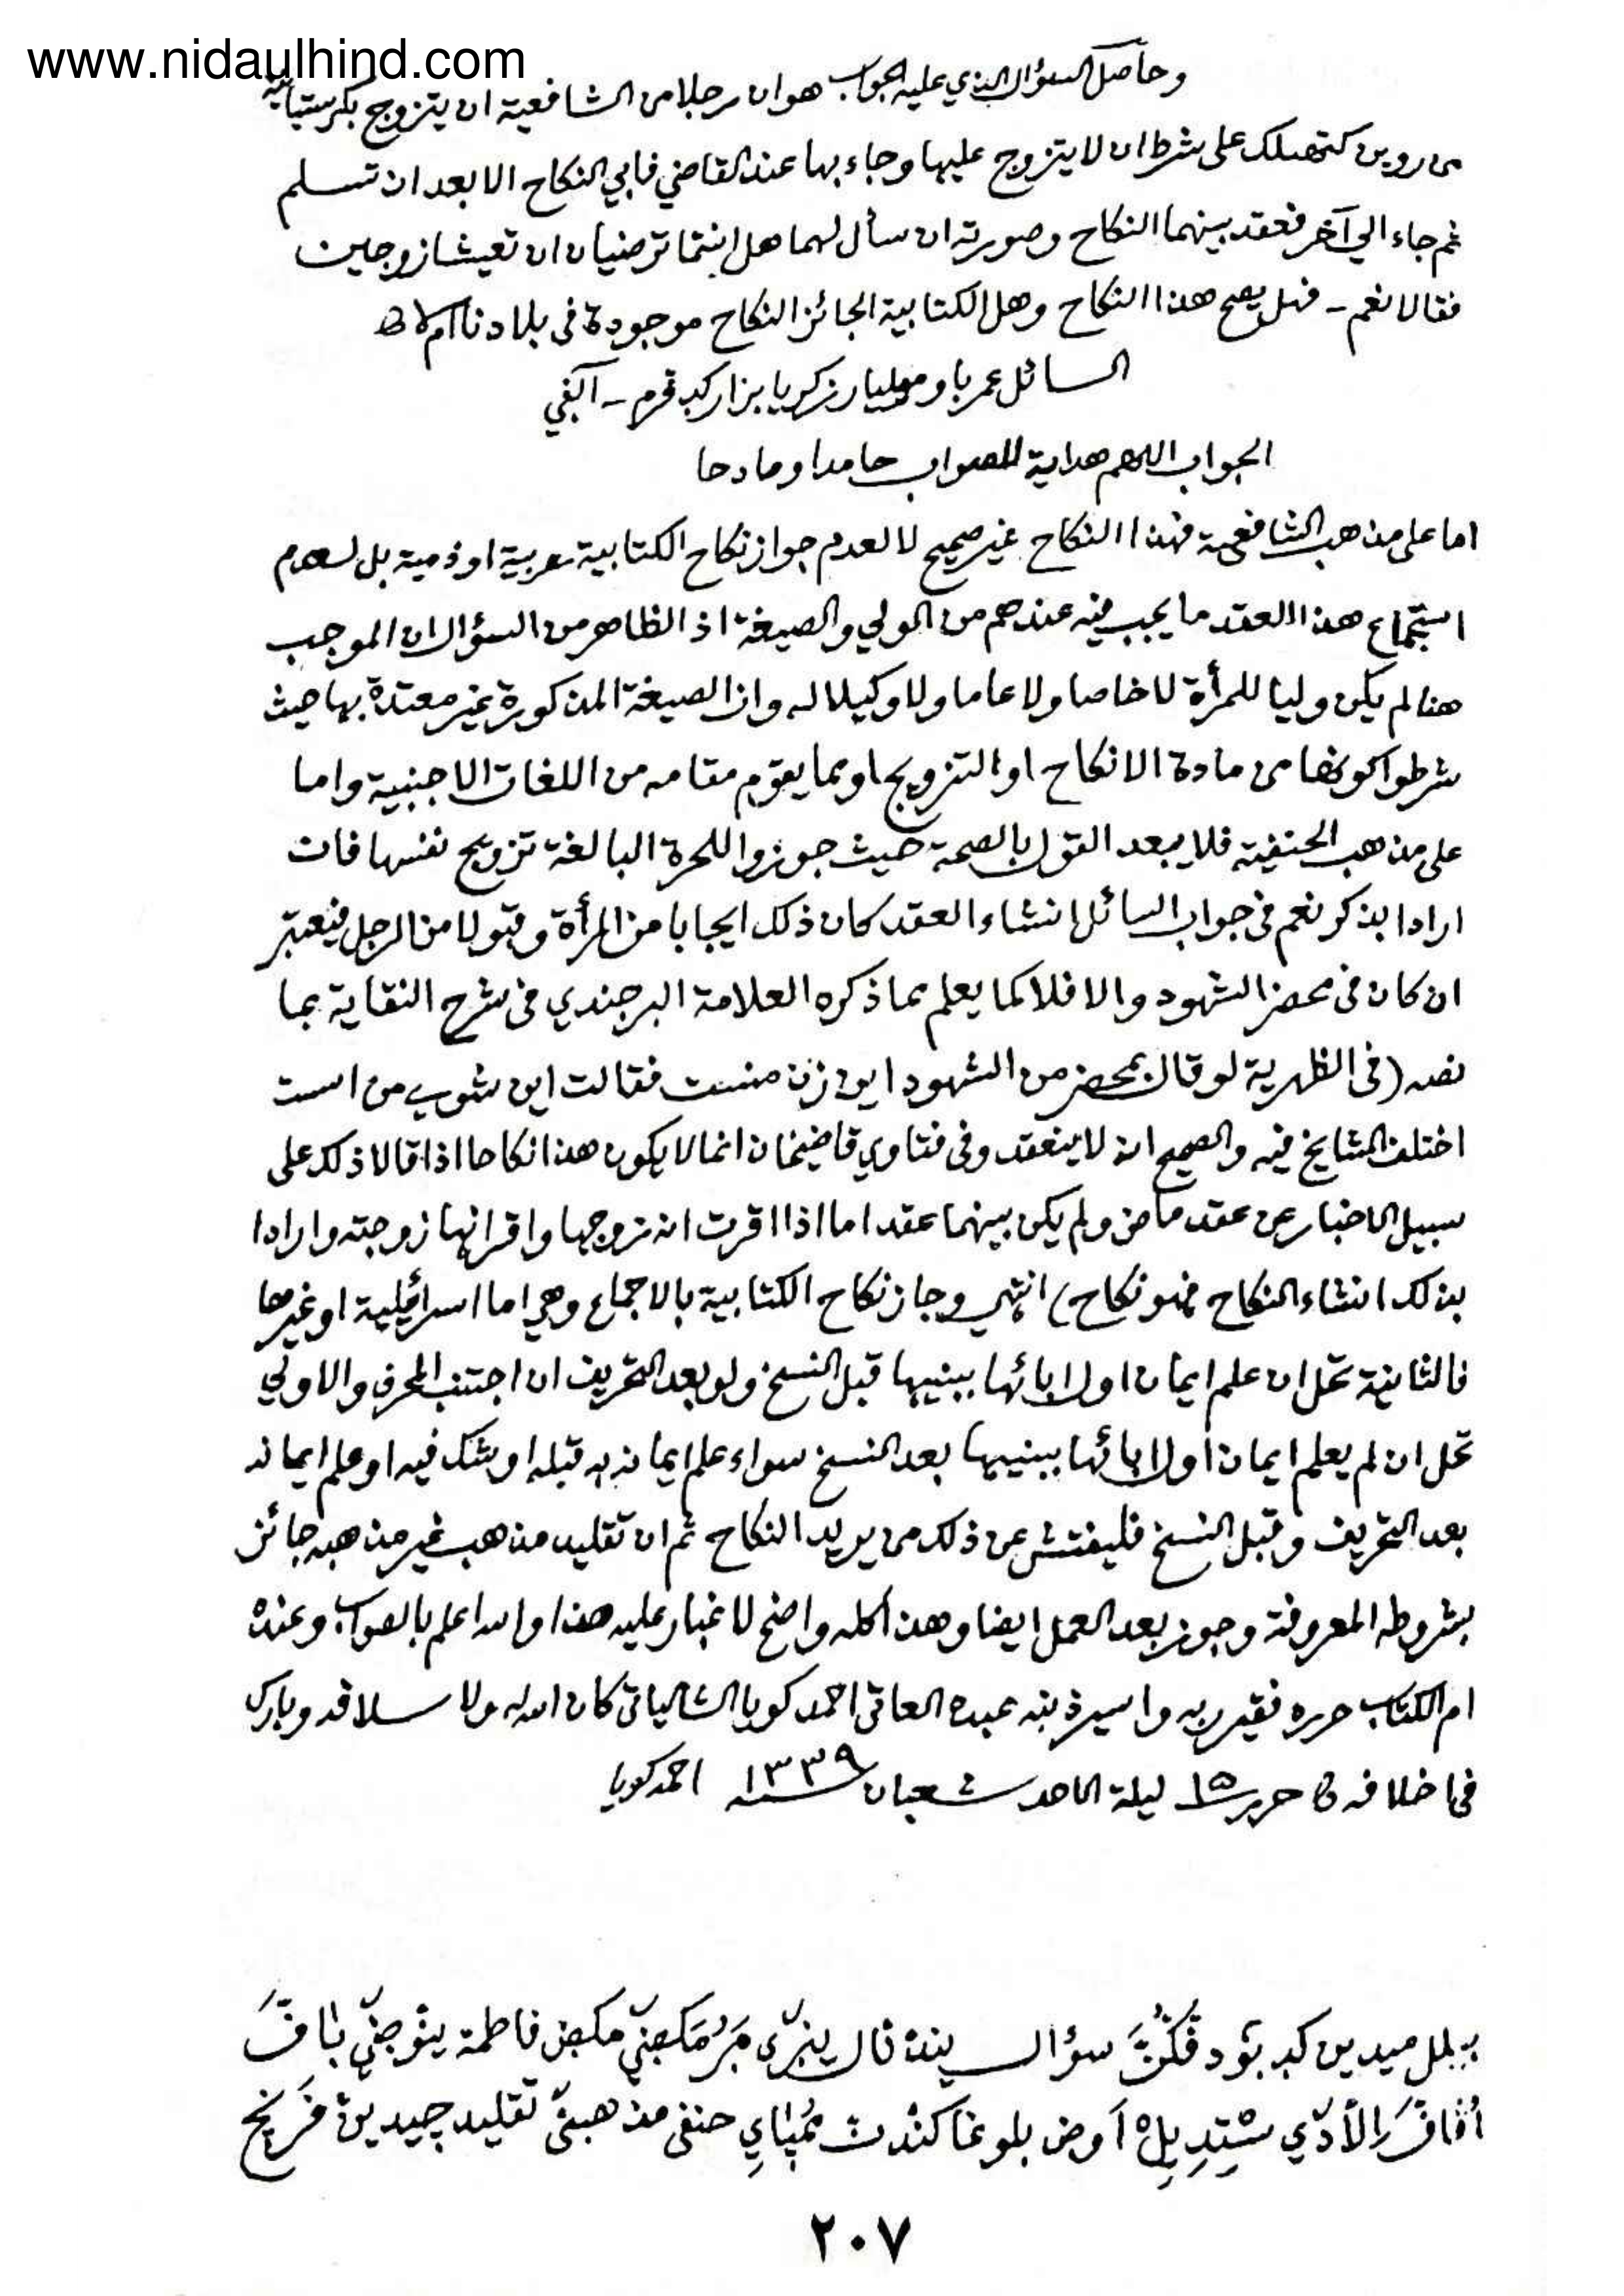 www.nidaulhind.com
وحاصل السؤال الذي عليه الجواب هو ان رجلا من الشافعية ان يتزوج بكرستيانية
من رومن كتهلك على شرط ان لا يتزوج عليها وجاء بها عند القاضي فابي النكاح الا بعد ان تسلم
ثم جاء الي آخر فعقد بينهما النكاح وصورته ان سأل لهما هل انتما ترضيان ان تعيشا زوجين
فقالا نعم - فهل يصح هذا النكاح وهل الكتابية الجائز النكاح موجودة في بلادنا ام لا
السائل عمر باوموليار زكريا بزار
الجواب اللهم هداية للصواب حامدا ومادحا
اما على مذهب الشافعية فهذا النكاح غير صحيح لا لعدم جواز نكاح الكتابية حربية او ذمية بل لعدم
استجماع هذا العقد ما يجب فيه عندهم من الولي والصيغة اذ الظاهر من السؤال ان الموجب
هنا لم يكن وليا للمرأة لا خاصا ولا عاما ولا وكيلا له وان الصيغة المذكورة غير معتدة بها حيث
شرطوا كونها من مادة الانكاح او التزويج او بما يقوم مقامه من اللغات الاجنبية واما
على مذهب الحنفية فلا يبعد القول بالصحة حيث جوزوا للحرة البالغة تزويج نفسها فان
ارادا بذكر نعم في جواب السائل انشاء العقد كان ذلك ايجابا من المرأة وقبولا من الرجل فيعتبر
ان كان في محضر الشهود والا فلا كما يعلم مما ذكره العلامة البرجندي في شرح النقاية بما
نصه (في الظهرية لو قال بمحضر من الشهود اين زن منست فقالت اين شوي من است
اختلف المشايخ فيه والصحيح انه لا ينعقد وفي فتاوي قاضيخان انما لا يكون هذا نكاحا اذا قالا ذلك على
سبيل الاخبار عن عقد ماض ولم يكن بينهما عقد اما اذا اقرت انه زوجها واقر انها زوجته وارادا
بذلك انشاء النكاح فهو نكاح) انتهي وجاز نكاح الكتابية بالاجماع وهي اما اسرائيلية او غيرها
فالثانية تحل ان علم ايمان اول ابائها بنبيها قبل النسخ ولو بعد التحريف ان اجتنب المحرف والاولي
تحل ان لم يعلم ايمان اول ابائها بنبيها بعد النسخ سواء علم ايمانه به قبله او شك فيه او علم ايمانه
بعد التحريف وقبل النسخ فليفتش عن ذلك من يريد النكاح ثم ان تقليد مذهب غير مذهبه جائز
بشروطه المعروفة وجوز بعد العمل ايضا وهذا كله واضح لا غبار عليه هذا والله اعلم بالصواب وعنده
ام الكتاب حرره فقير ربه واسير ذنبه عبده العاقي احمد كويا الشالياتي كان الله له ولاسلافه وبارك
في اخلافه حرر ١٥ ليلة الاحد شعبان سنة ١٣٣٩ احمد كويا
سؤال فاطمة
حنفي مذهبن تقليد
٢٠٧